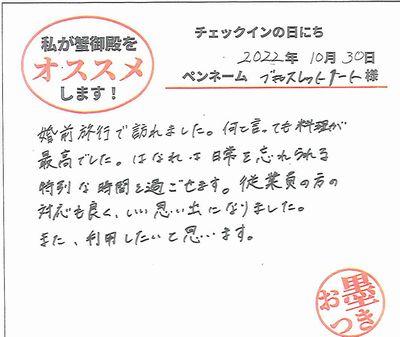 私が蟹御殿を
オススメ
します！
チェックインの日にち
2022年 10月 30日
ペンネーム ブレスレットアート様
婚前旅行で訪れました。何と言っても料理が
最高でした。はなれは日常を忘れられる
特別な時間を過ごせます。従業員の方の
対応も良く、いい思い出になりました。
また、利用したいと思います。
お墨つき